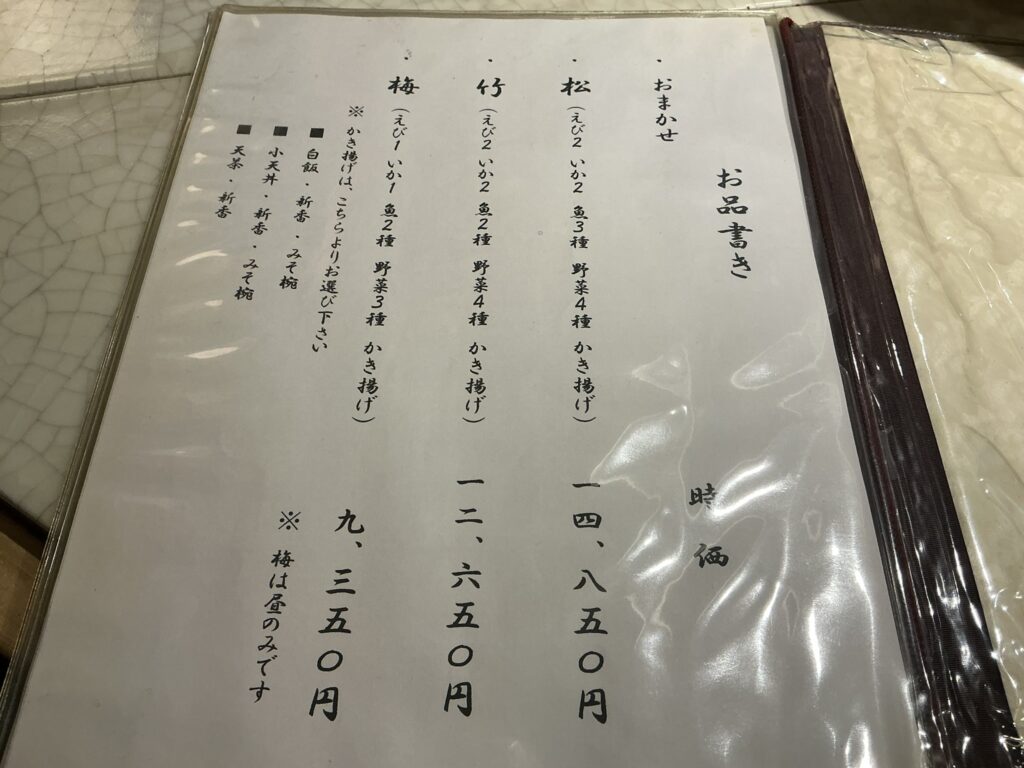 お品書き
・おまかせ 時価
・松（えび2 いか2 魚3種 野菜4種 かき揚げ） 一四、八五〇円
・竹（えび2 いか2 魚2種 野菜4種 かき揚げ） 一二、六五〇円
・梅（えび1 いか1 魚2種 野菜3種 かき揚げ） 九、三五〇円
※かき揚げは、こちらよりお選び下さい
■白飯・新香・みそ椀
■小天丼・新香・みそ椀
■天茶・新香
※梅は昼のみです